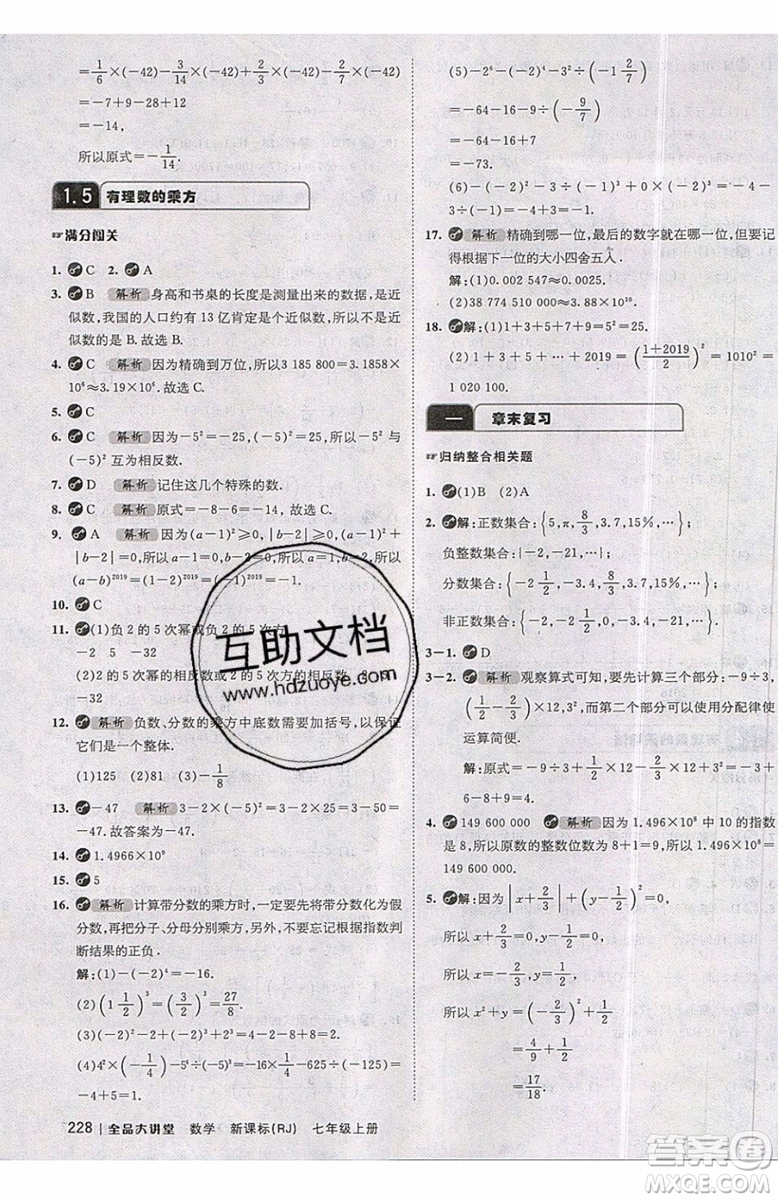 =1/6×(-42)-3/14×(-42)+2/3×(-42)-2/7×(-42)
=-7+9-28+12
=-14.
所以原式=-1/14.
1.5 有理数的乘方
☞满分闯关
1. C 2. A
3. B 解析 身高和书桌的长度是测量出来的数据,是近
似数,我国的人口约有 13 亿肯定是个近似数,所以不是近
似数的是 B. 故选 B.
4. C 解析 因为精确到万位,所以3 185 800=3.1858×
10⁶≈3.19×10⁶. 故选 C.
5. C
6. C 解析 因为-5²=-25,(-5)²=25,所以-5²与
(-5)² 互为相反数.
7. D 解析 记住这几个特殊的数.
8. C 解析 原式=-8-6=-14. 故选 C.
9. A 解析 因为(a-1)²≥0,|b-2|≥0,(a-1)²+
|b-2|=0,所以a-1=0,b-2=0,所以a=1,b=2,所以
(a-b)²⁰¹⁹=(1-2)²⁰¹⁹=(-1)²⁰¹⁹=-1.
10. C
11. (1)负 2 的 5 次幂或负 2 的 5 次方
-2 5 -32
(2)2 的 5 次幂的相反数或 2 的 5 次方的相反数 2 5
-32
12. 解析 负数、分数的乘方中底数需要加括号,以保证
它们是一个整体.
(1)125 (2)81 (3)-1/8
13. -47 解析 3-2×(-5)²=3-2×25=3-50=
-47. 故答案为-47.
14. 1.4966×10⁹
15. 5
16. 解析 计算带分数的乘方时,一定要先将带分数化为假
分数,再把分子、分母分别乘方,另外,不要忘记根据指数判
断结果的正负.
解:(1)-4²=-16.
(2)(1 1/2)³=(3/2)³=27/8.
(3)(-2)+(-2)²+(-2)³=-2+4-8=-6.
(4)4²×(-1/4)-5⁴÷(-5)³=16×(-1/4)-625÷(-125)=
-4+5=1.
(5)-2⁶-(-2)⁴-3²÷(-1 2/7)
=-64-16-9÷(-9/7)
=-64-16+7
=-73.
(6)-2²-(-2)²-3²×(-1/3)+0×(-2)³=-4-4-
9×(-1/3)+0=-4-4+3+0=-5.
17. 解析 精确到哪一位,最后的数字就在哪一位,但要记
得根据下一位的大小四舍五入.
解:(1)0.002 547≈0.0025.
(2)38 774 510 000≈3.88×10¹⁰.
18. 解:(1)1+3+5+7+9=5²=25.
(2)1+3+5+7+9+…+2019=((1+2019)/2)²=1010²=
1 020 100.
一 章末复习
☞归纳整合相关题
1. (1)B (2)A
2. 解:正数集合:{5,π,8/3,3.7,15%,…};
负整数集合:{-2,-21,…};
分数集合:{-2 1/2,-3.4,8/3,3.7,15%,…};
非正数集合:{-2 1/2,-2,0,-3.4,-21,…}.
3-1. D
3-2. 解析 观察算式可知,要先计算三个部分:-9÷3,
(1/2-2/3)×12,3²,而第二个部分可以使用分配律使
运算简便.
解:原式=-9÷3+1/2×12-2/3×12+3²=-3+
6-8+9=4.
4. 149 600 000 解析 因为 1.496×10⁸ 中 10 的指数
是 8,所以原数的整数位数为 8+1=9,所以 1.496×10⁸=
149 600 000.
5. 解:因为|x+2/3|+(y-1/2)²=0,
所以 x=-2/3,y=1/2.
所以 x²+y=(-2/3)²+1/2
=4/9+1/2
=17/18.
228 全品大讲堂 数学 新课标(RJ) 七年级上册
互助文档
www.hdzuoye.com
答案圈
MXQE.COM